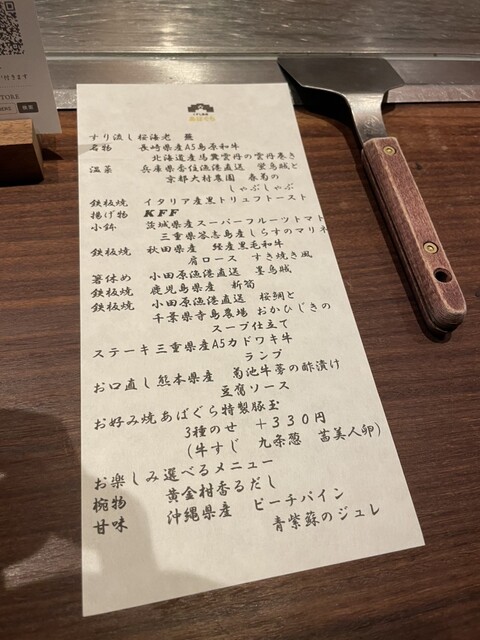 あばぐら
すり流し 桜海老 蕪
名物 長崎県産A5島原和牛
北海道産馬糞雲丹の雲丹巻き
温菜 兵庫県香住漁港直送 蛍烏賊と
京都大村農園 春菊の
しゃぶしゃぶ
鉄板焼 イタリア産黒トリュフトースト
揚げ物 KFF
小鉢 茨城県産スーパーフルーツトマト
三重県答志島産しらすのマリネ
鉄板焼 秋田県産 経産黒毛和牛
肩ロース すき焼き風
箸休め 小田原漁港直送 墨烏賊
鉄板焼 鹿児島県産 新筍
鉄板焼 小田原漁港直送 桜鯛と
千葉県寺島農場 おかひじきの
スープ仕立て
ステーキ 三重県産A5カドワキ牛
ランプ
お口直し 熊本県産 菊池牛蒡の酢漬け
豆腐ソース
お好み焼 あばぐら特製豚玉
3種のせ +330円
(牛すじ 九条葱 茜美人卵)
お楽しみ選べるメニュー
椀物 黄金柑香るだし
甘味 沖縄県産 ピーチパイン
青紫蘇のジュレ